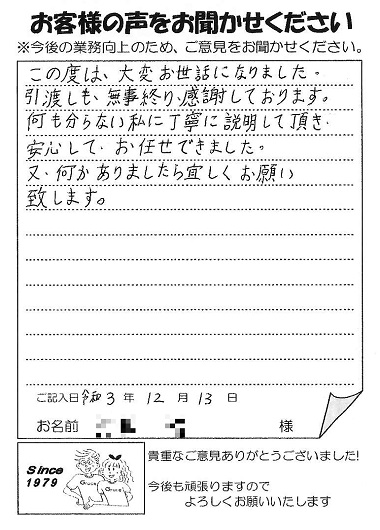 お客様の声をお聞かせください
※今後の業務向上のため、ご意見をお聞かせください。
この度は、大変お世話になりました。
引渡しも、無事終り、感謝しております。
何も分らない私に丁寧に説明して頂き、
安心して、お任せできました。
又、何かありましたら宜しくお願い
致します。
ご記入日 令和 3 年 12 月 13 日
お名前 様
Since
1979
Grace
Grace
貴重なご意見ありがとうございました!
今後も頑張りますので
よろしくお願いいたします